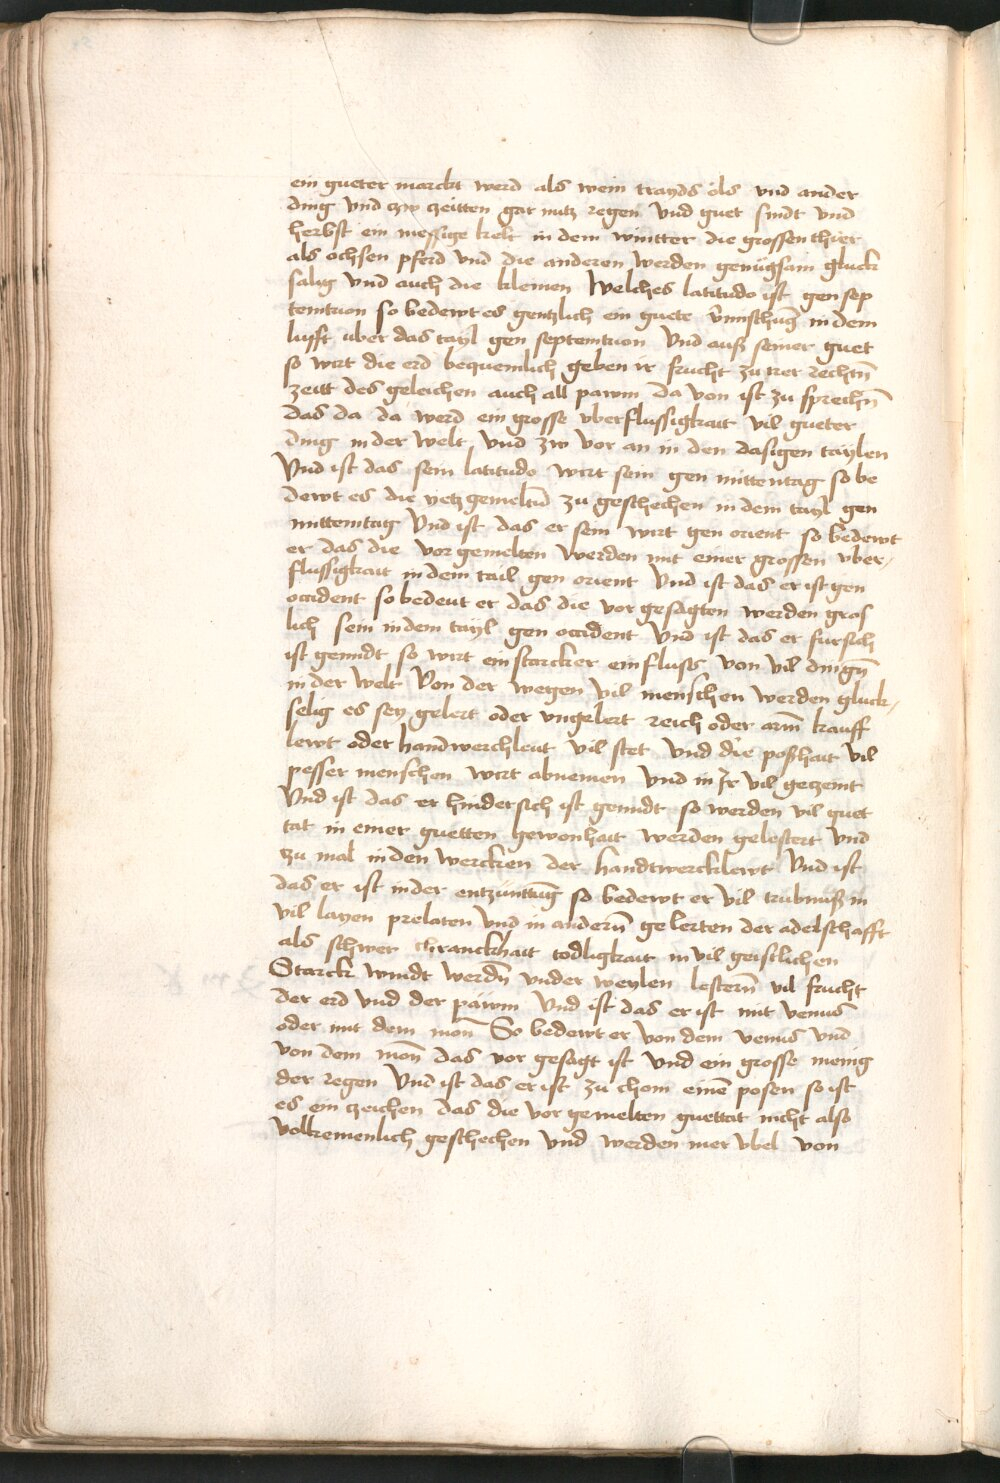 ein gueter marckt werd als wein trayds öls vnd ander
ding Vnd czw czeitten gar nutz regen Vnd guet sindt Vnd
herbst ein messige kelt in dem wintter die grossen thier
als ochsen pferd Vnd die anderen werden genügsam gluck
salig Vnd auch die kleinen Welches latitudo ist gen sep
temtrion so bedewt es gentzlich ein guete vmischūg in dem
lufft vber das tayl gen septemtrion Vnd auß seiner guet
so wirt die erd bequemlich geben ir frucht zu irer rechtn̄
zeitt des geleichen auch all pawm da von ist zu sprechn̄
das da da werd ein grosse vberflussigkait vil gueter
ding in der welt Vnd zw vor an in den dasigen taylen
Vnd ist das sein latitudo wirt sein gen mittentag so be
dewt es die yetz gemeltn̄ zu geschechen in dem tayl gen
mittemtag Vnd ist das er sein wirt gen orient so bedewt
er das die vor gemelten werden mit einer grossen vber/
flussigkait in dem tail gen orient Vnd ist das er ist gen
occident so bedeut er das die vor gesagten werden gros
lich sein in dem tayl gen occident Vnd ist das er fursich
ist genndt so wirt ein starcker einfluss von vil dingn̄
in der welt Von der wegen vil menschen werden gluck/
selig es sey gelert oder vngelert reich oder arm̄ kauff
lewt oder handwerchleut vil stet Vnd die poßhait vil
pesser menschen wirt abnemen Vnd in Jr vil geczemt
Vnd ist das er hindersich ist genndt so werden vil guet
tat in einer guetten gewonhait werden gelestert Vnd
zu mal in den wercken der handtwercklewt Vnd ist
das er ist in der entzünttūg so bedewt er vil trübnuß in
vil layen prelaten Vnd in andern̄ gelerten der adelschafft
als schwer chranckhait todligkait in vil geistlichen
Starck windt werdn̄ vnder weylen lestern̄ vil frucht
der erd vnd der päwm Vnd ist das er ist mit venus
oder mit dem mon̄ So bedewt er von dem venus vnd
von dem mon̄ das vor gesagt ist Vnd ein grosse menig
der regen Vnd ist das er ist zu chom einē posen so ist
es ein zeichen das die vor gemelten guettat nicht also
volkemenlich geschechen Vnd werden mer vbel von